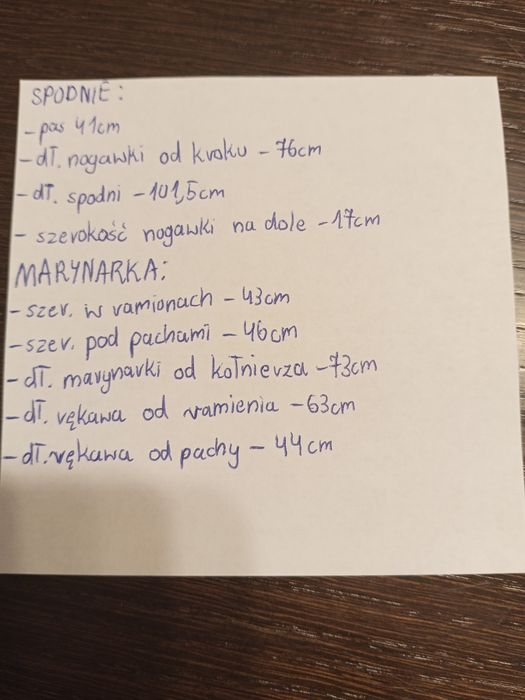 SPODNIE:
- pas 41cm
- dł. nogawki od kroku - 76cm
- dł. spodni - 101,5cm
- szerokość nogawki na dole - 17cm
MARYNARKA:
- szer. w ramionach - 43cm
- szer. pod pachami - 46cm
- dł. marynarki od kołnierza - 73cm
- dł. rękawa od ramienia - 63cm
- dł. rękawa od pachy - 44cm